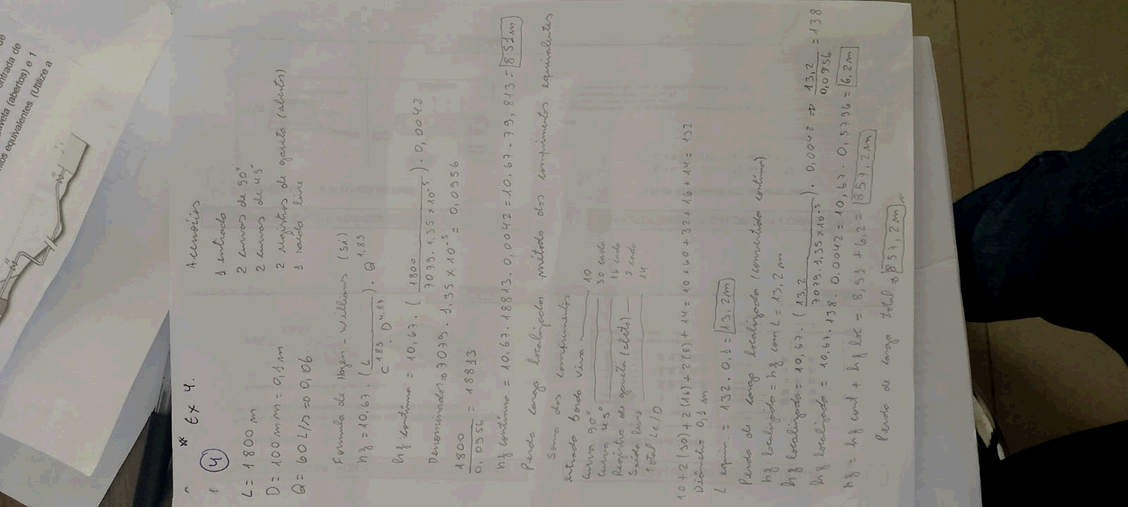 entrada de
gaveta (abertos) e 1
equivalentes. (Utilize a
* Ex 4.
4
L = 1800 m
D = 100 mm = 0,1 m
Q = 60 L/s => 0,06
Acessórios
1 entrada
2 curvas de 90°
2 curvas de 45°
2 registros de gaveta (abertos)
1 saída livre
Formula de Hazen-Williams (SI)
hf = 10,67 . ( L / C 1,85 . D 4,87 ) . Q 1,85
hf contínuo = 10,67 . ( 1800 / 7079 . 1,35 x 10⁻⁵ ) . 0,0042
Denominador => 7079 . 1,35 x 10⁻⁵ = 0,0956
1800 / 0,0956 = 18813
hf contínuo = 10,67 . 18813 . 0,0042 = 10,67 . 79,813 = 851 m
Perda carga localizadas método dos comprimentos equivalentes
Soma dos comprimentos
entrada borda viva 10
Curva 90° 30 cada
Curva 45° 16 cada
Registro de gaveta (aberto) 8 cada
Saída livre 14
Total Le/D
10 + 2(30) + 2(16) + 2(8) + 14 = 10 + 60 + 32 + 16 + 14 = 132
Diâmetro 0,1 m
L equiv = 132 . 0,1 = 13,2 m
Perda de carga localizada (como método contínuo)
hf localizado = hf com L = 13,2 m
hf localizado = 10,67 . ( 13,2 / 7079 . 1,35 x 10⁻⁵ ) . 0,0042 => 13,2 / 0,0956 = 138
hf localizado = 10,67 . 138 . 0,0042 = 10,67 . 0,5796 = 6,2 m
hf = hf cont + hf loc = 8,51 + 6,2 = 857,2 m
Perda de carga total 857,2 m